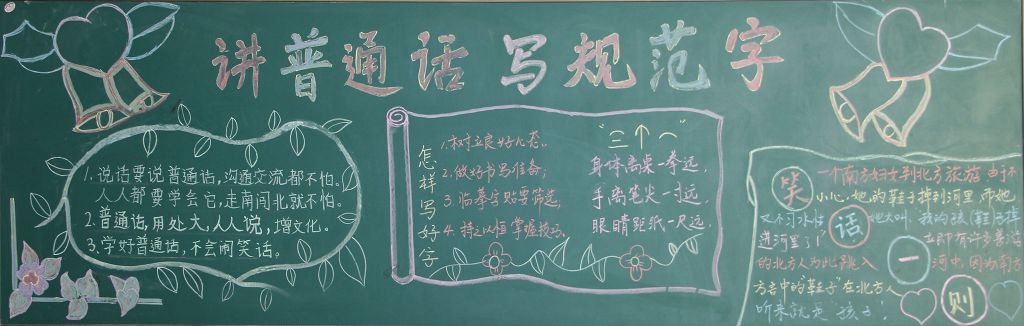 讲普通话 写规范字
1.说话要说普通话，沟通交流都不怕。
人人都要学会它，走南闯北就不怕。
2.普通话，用处大，人人说，增文化。
3.学好普通话，不会闹笑话。
怎样写好字
1.树立良好心态。
2.做好书写准备；
3.临摹字贴要筛选；
4.持之以恒掌握技巧。
“三个一”
身体离桌一拳远，
手离笔尖一寸远，
眼睛距纸一尺远。
笑话一则
一个南方妇女到北方旅游 由于不
小心，她的鞋子掉到河里，而她
又不习水性 她大叫：我的孩(鞋)子掉
进河里了！ 立即有许多善泳
的北方人为此跳入 河中，因为南方
方言中的“鞋子”在北方人
听来就是“孩子”